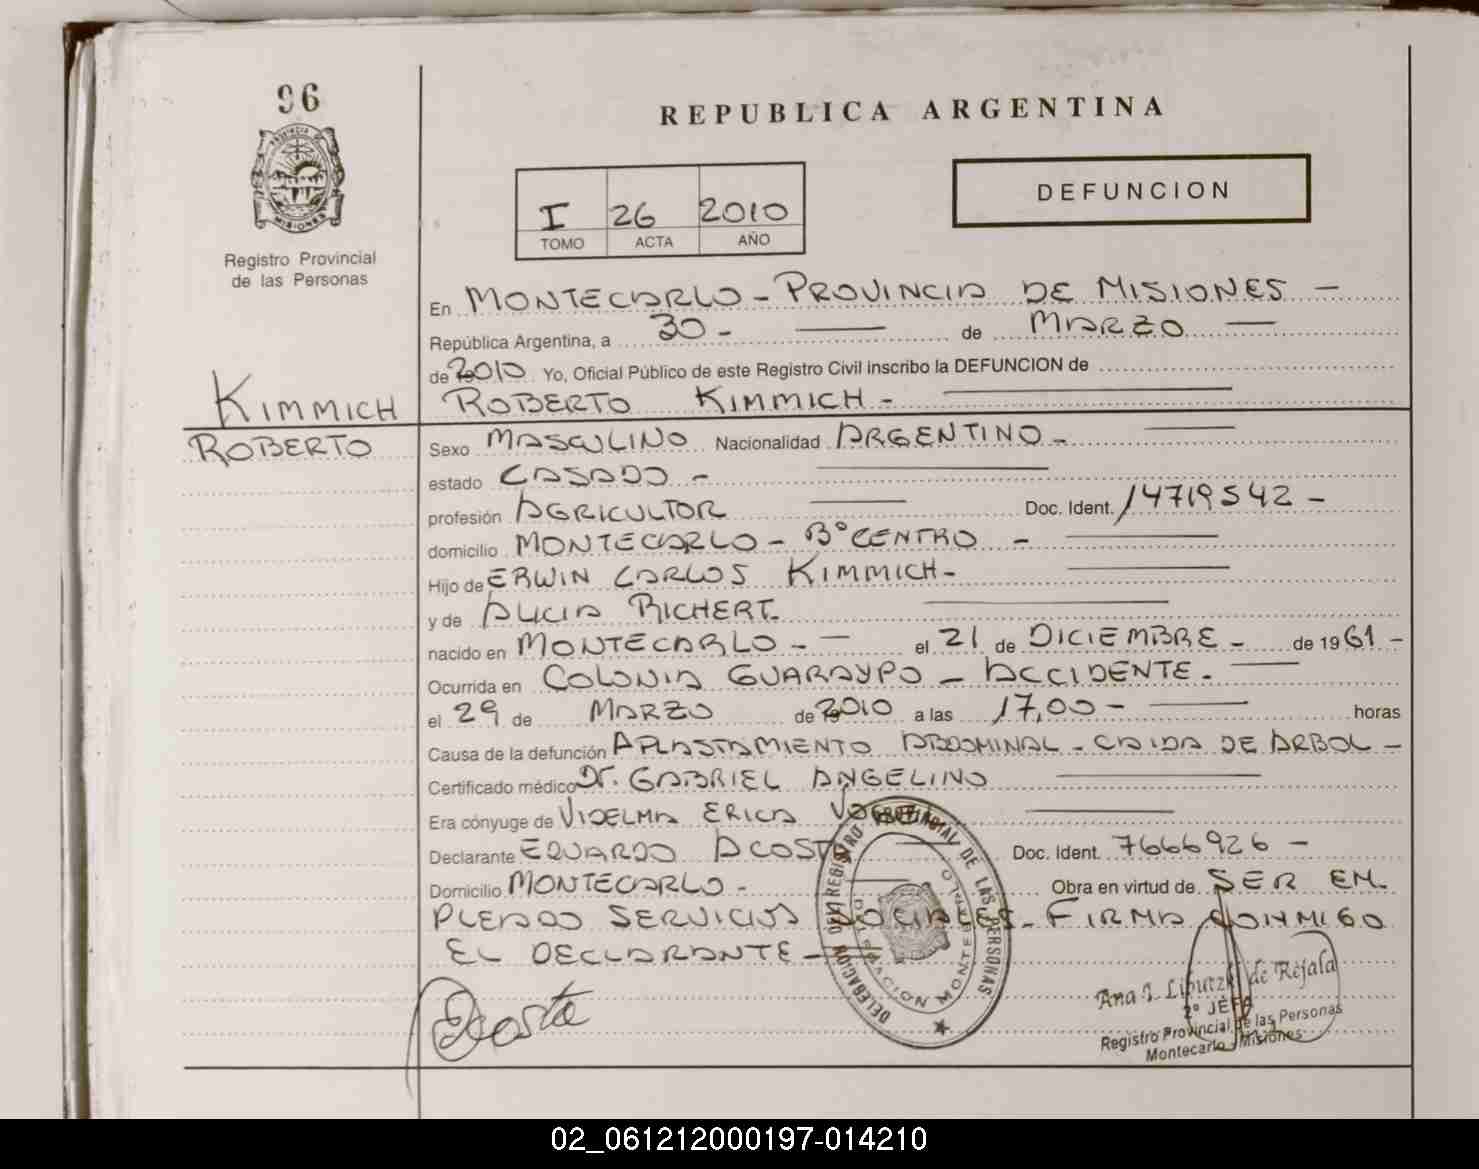 96
PROVINCIA
MISIONES
Registro Provincial
de las Personas
REPUBLICA ARGENTINA
I 26 2010
TOMO ACTA AÑO
DEFUNCION
En MONTECARLO - PROVINCIA DE MISIONES -
República Argentina, a 30 - de MARZO
de 2010 Yo, Oficial Público de este Registro Civil inscribo la DEFUNCION de
KIMMICH ROBERTO KIMMICH -
ROBERTO Sexo MASCULINO Nacionalidad ARGENTINO -
estado CASADO -
profesión AGRICULTOR Doc. Ident. 14719542 -
domicilio MONTECARLO - Bº CENTRO -
Hijo de ERWIN CARLOS KIMMICH -
y de ALICIA RICHERT.
nacido en MONTECARLO - - el 21 de DICIEMBRE - de 1961 -
Ocurrida en COLONIA GUARAYPO - ACCIDENTE.
el 29 de MARZO de 2010 a las 17,00 - horas
Causa de la defunción APLASTAMIENTO ABDOMINAL - CAIDA DE ARBOL -
Certificado médico Dr. GABRIEL ANGELINO
Era cónyuge de VIDELMA ERICA
Declarante EDUARDO ACOSTA Doc. Ident. 7666926 -
Domicilio MONTECARLO - Obra en virtud de SER EM.
PLEADO SERVICIOS SOCIALES - FIRMA CONMIGO
EL DECLARANTE -
DELEGACION DEL REGISTRO PROVINCIAL DE LAS PERSONAS
DELEGACION MONTECARLO
Acosta
Ana I. Liputzki de Rejala
2º JEFA
Registro Provincial de las Personas
Montecarlo - Misiones
02_061212000197-014210